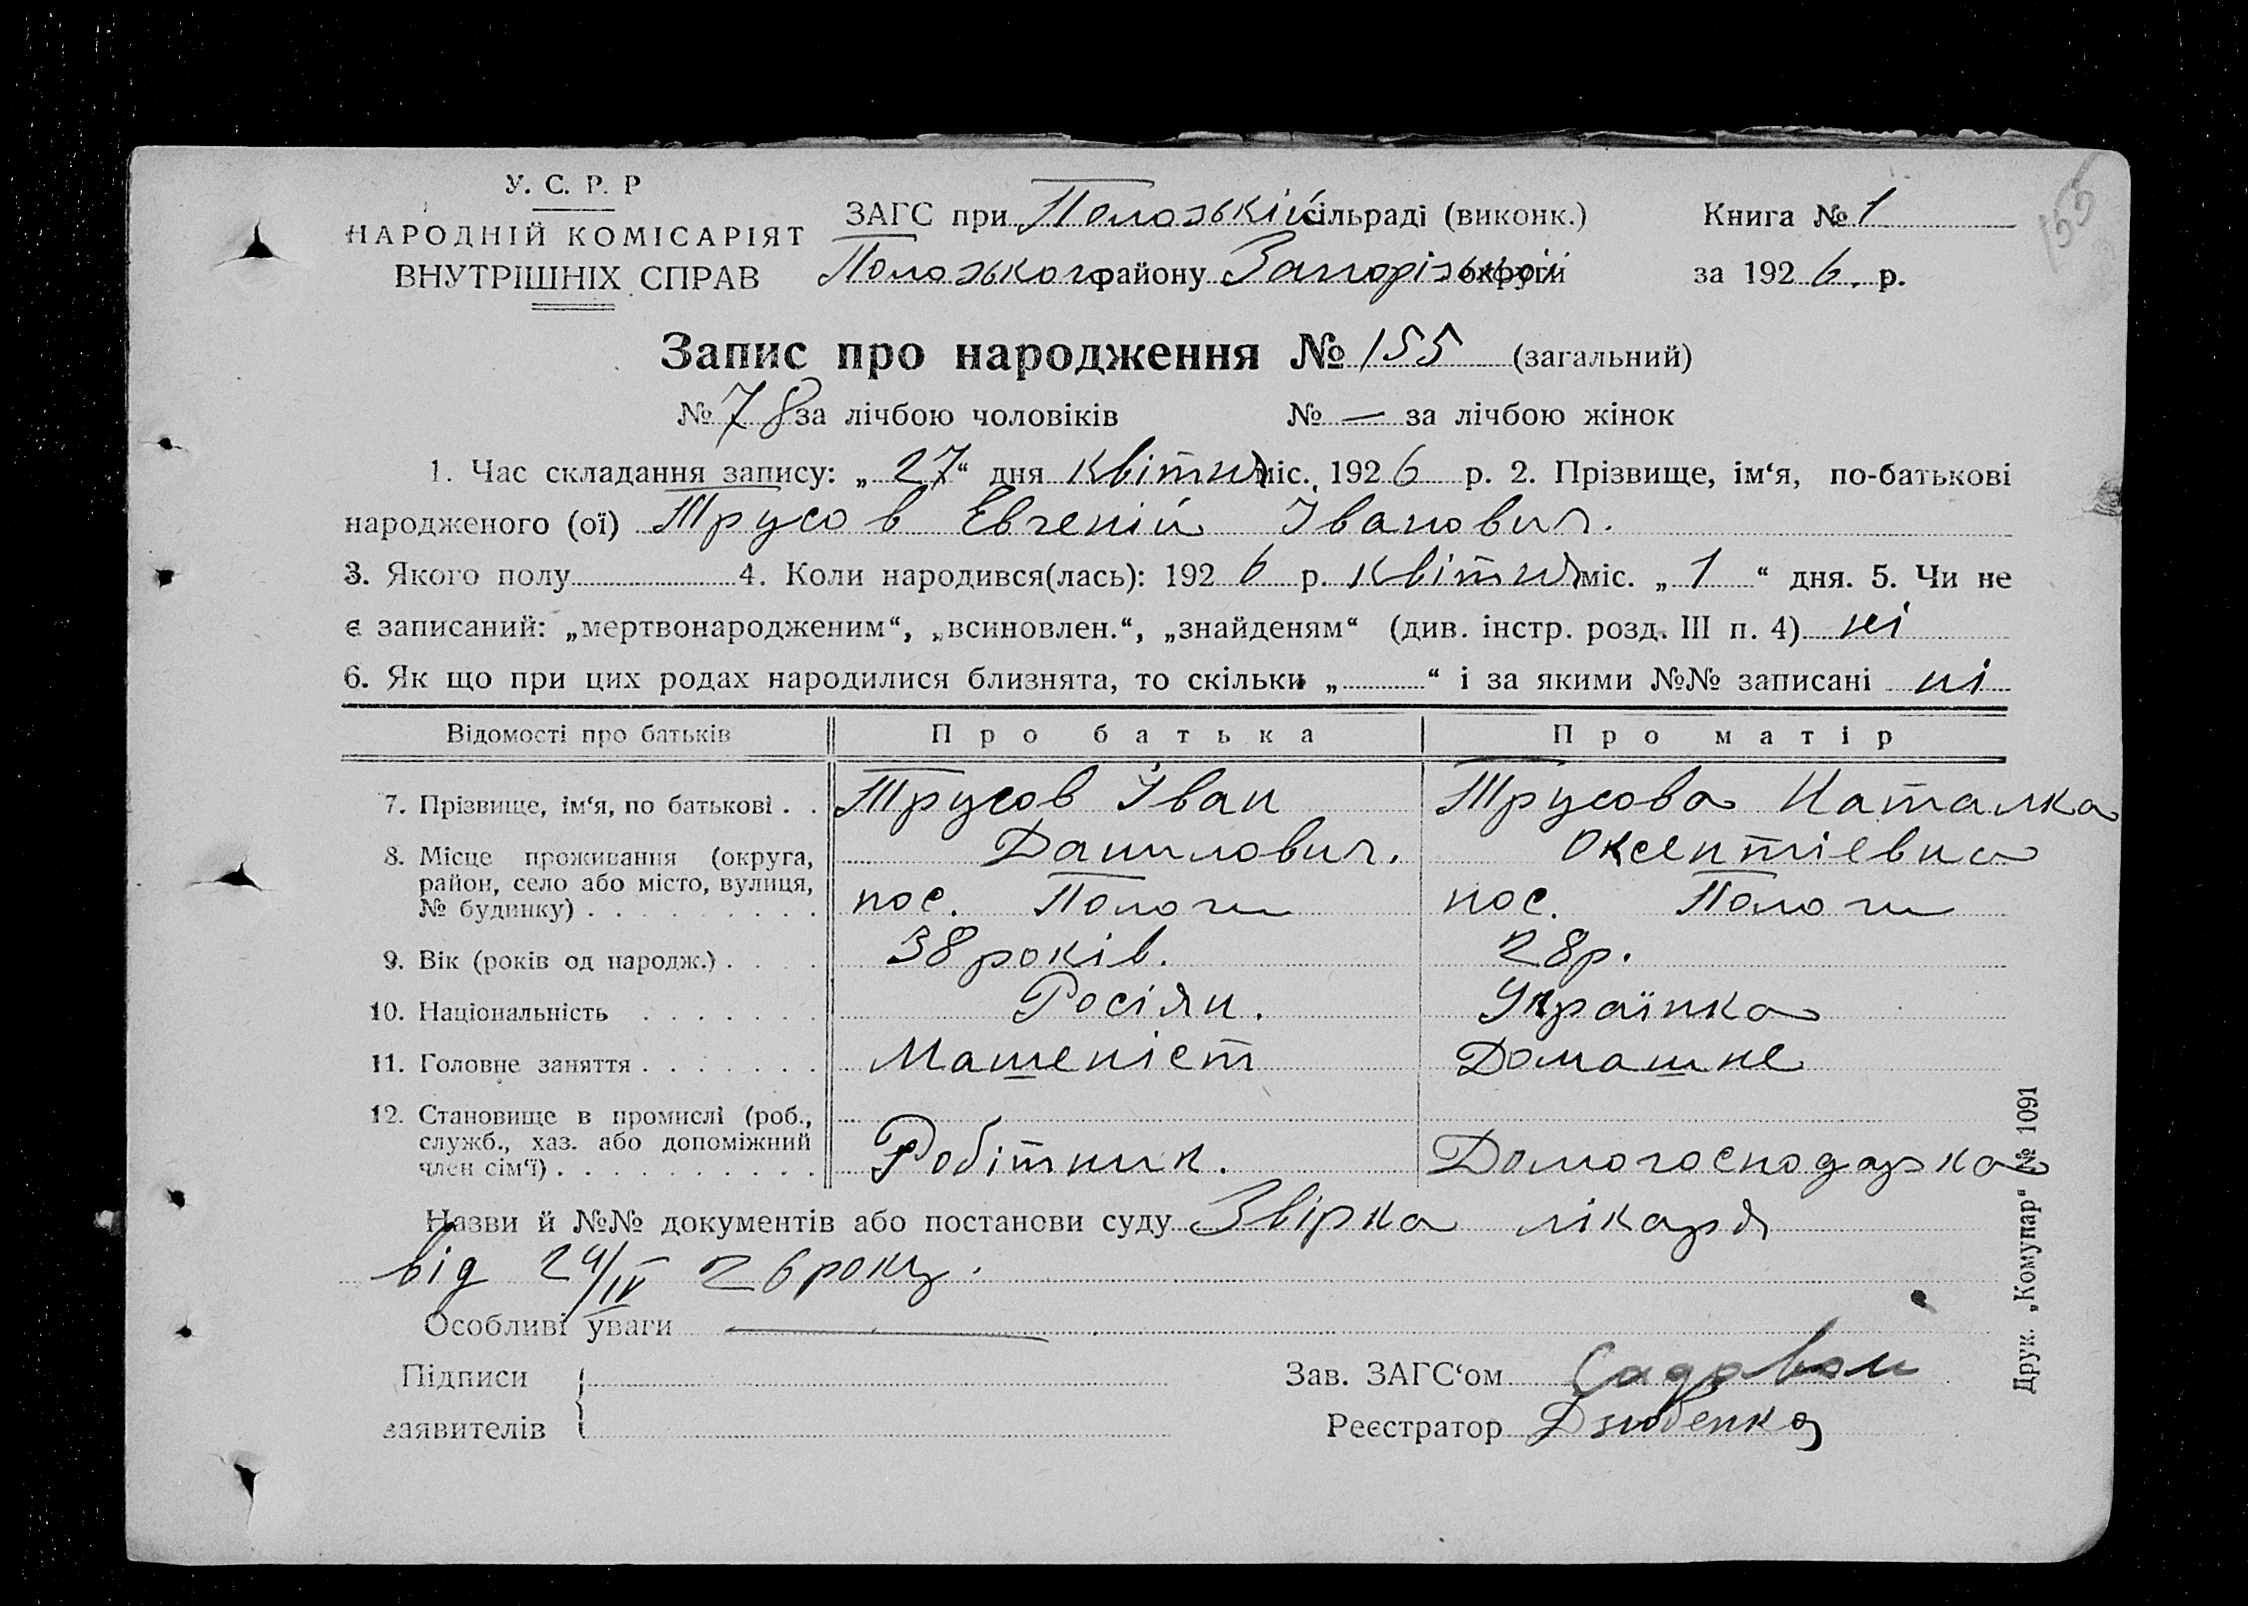 155
У. С. Р. Р
НАРОДНІЙ КОМІСАРІЯТ
ВНУТРІШНІХ СПРАВ
ЗАГС при Положській сільраді (виконк.) Книга № 1
Положського району Запорізької округи за 1926. р.
Запис про народження № 155 (загальний)
№ 78 за лічбою чоловіків № — за лічбою жінок
1. Час складання запису: „ 27 “ дня квітня міс. 1926 р. 2. Прізвище, ім‘я, по-батькові
народженого (ої) Трусов Евгеній Іванович.
3. Якого полу 4. Коли народився(лась): 1926 р. квітня міс. „ 1 “ дня. 5. Чи не
є записаний: „мертвонародженим“, „всиновлен.“, „знайденям“ (див. інстр. розд. III п. 4) ні
6. Як що при цих родах народилися близнята, то скільки „ “ і за якими №№ записані ні
Відомості про батьків Про батька Про матір
7. Прізвище, ім‘я, по батькові . . Трусов Іван Данилович. Трусова Наталка Оксентіевна
8. Місце проживання (округа, район, село або місто, вулиця, № будинку) . . . . . . . . . пос. Пологи пос. Пологи
9. Вік (років од народж.) . . . . 38 років. 28 р.
10. Національність . . . . . . . Росіян. Українка
11. Головне заняття . . . . . . . Машеніст Домашне
12. Становище в промислі (роб., служб., хаз. або допоміжний член сім‘ї) . . . . . . . . . . Робітник. Домогосподарка
Назви й №№ документів або постанови суду Звірка лікаря
від 24/IV 26 року.
Особливі уваги —
Підписи
заявителів
Зав. ЗАГС‘ом Садовой
Реєстратор Дзюбенко
Друк. „Комупар“ № 1091